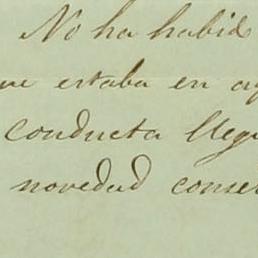 No ha habid
ue estaba en aq
conducta lleg
novedad conser